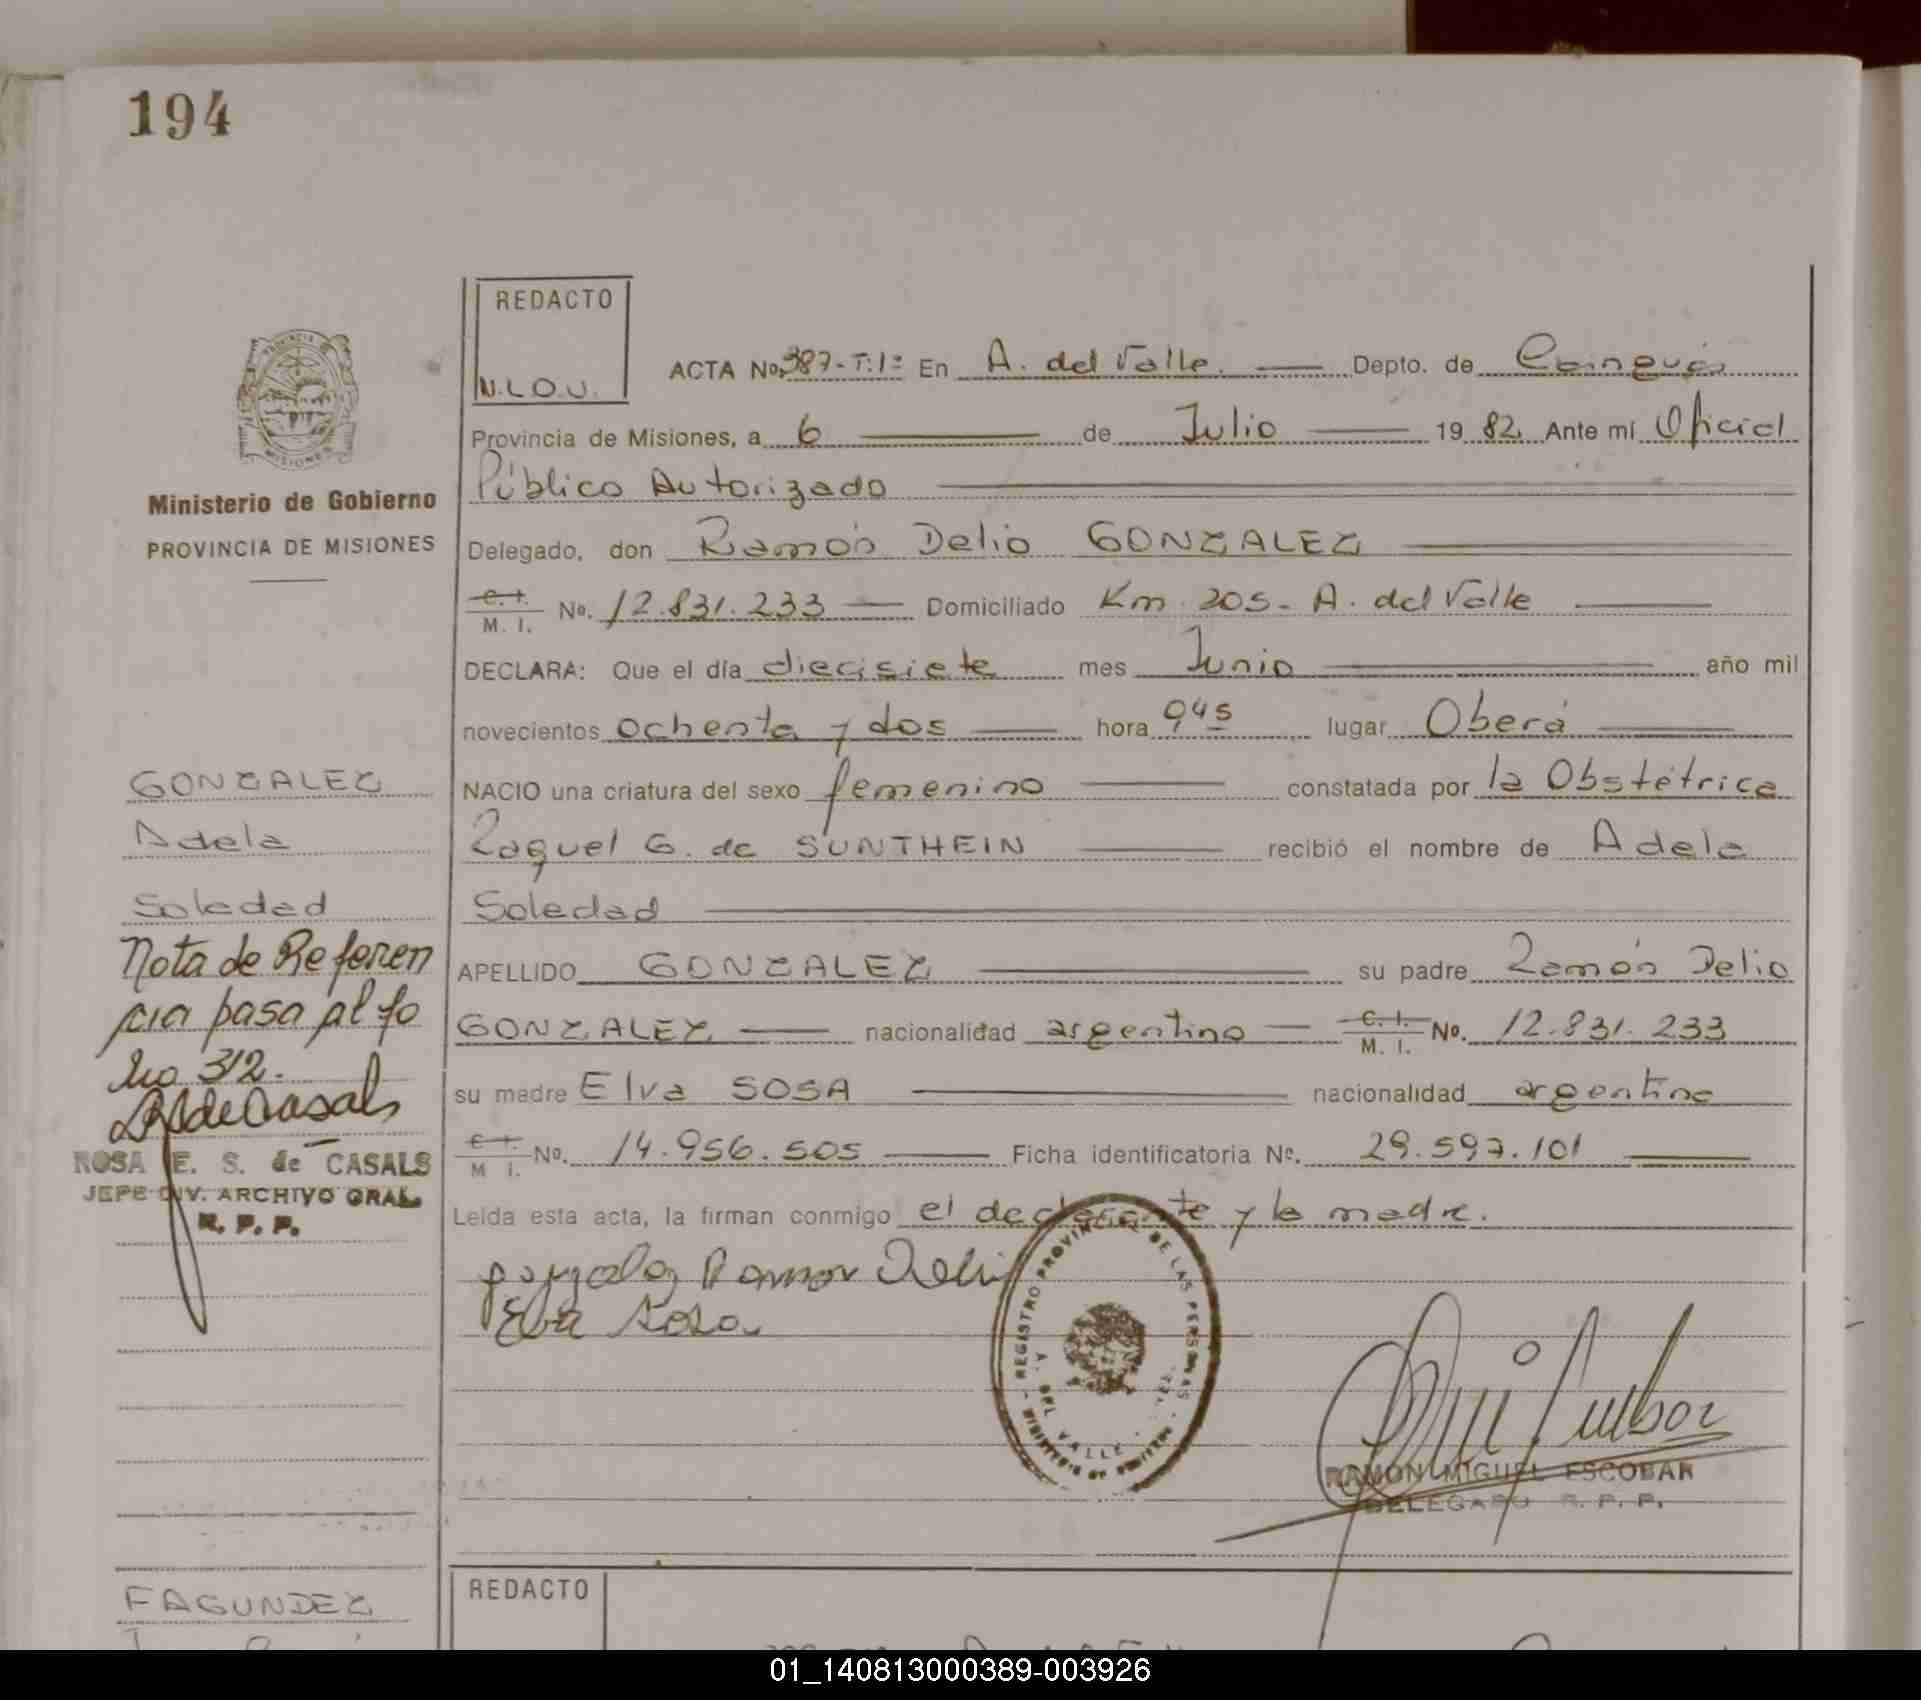 194
REDACTO
N.L.O.U.
ACTA No. 387-T:1º En A. del Valle. Depto. de Cainguás
Provincia de Misiones, a 6 de Julio 19 82 Ante mí Oficial
Público Autorizado
Delegado, don Ramón Delio GONZALEZ
C. I. M. I. No. 12.831.233 Domiciliado Km. 205 - A. del Valle
DECLARA: Que el día diecisiete mes Junio año mil
novecientos ochenta y dos hora 9,45 lugar Oberá
NACIO una criatura del sexo femenino constatada por la Obstétrica
Raquel G. de SUNTHEIN recibió el nombre de Adela
Soledad
APELLIDO GONZALEZ su padre Ramón Delio
GONZALEZ nacionalidad argentino C. I. M. I. No. 12.831.233
su madre Elva SOSA nacionalidad argentina
C. I. M I. No. 14.956.505 Ficha identificatoria No. 29.597.101
Leída esta acta, la firman conmigo el declarante y la madre.
Gonzalez Ramon Delio
Elva Sosa
REGISTRO PROVINCIAL DE LAS PERSONAS
MINISTERIO DE GOBIERNO
A. DEL VALLE
RAMON MIGUEL ESCOBAR
DELEGADO R. P. P.
PROVINCIA
MISIONES
Ministerio de Gobierno
PROVINCIA DE MISIONES
GONZALEZ
Adela
Soledad
Nota de Referen
cia pasa al fo
lio 312.
ROSA E. S. de CASALS
JEFE DIV. ARCHIVO GRAL.
R. P. P.
FAGUNDEZ
REDACTO
01_140813000389-003926